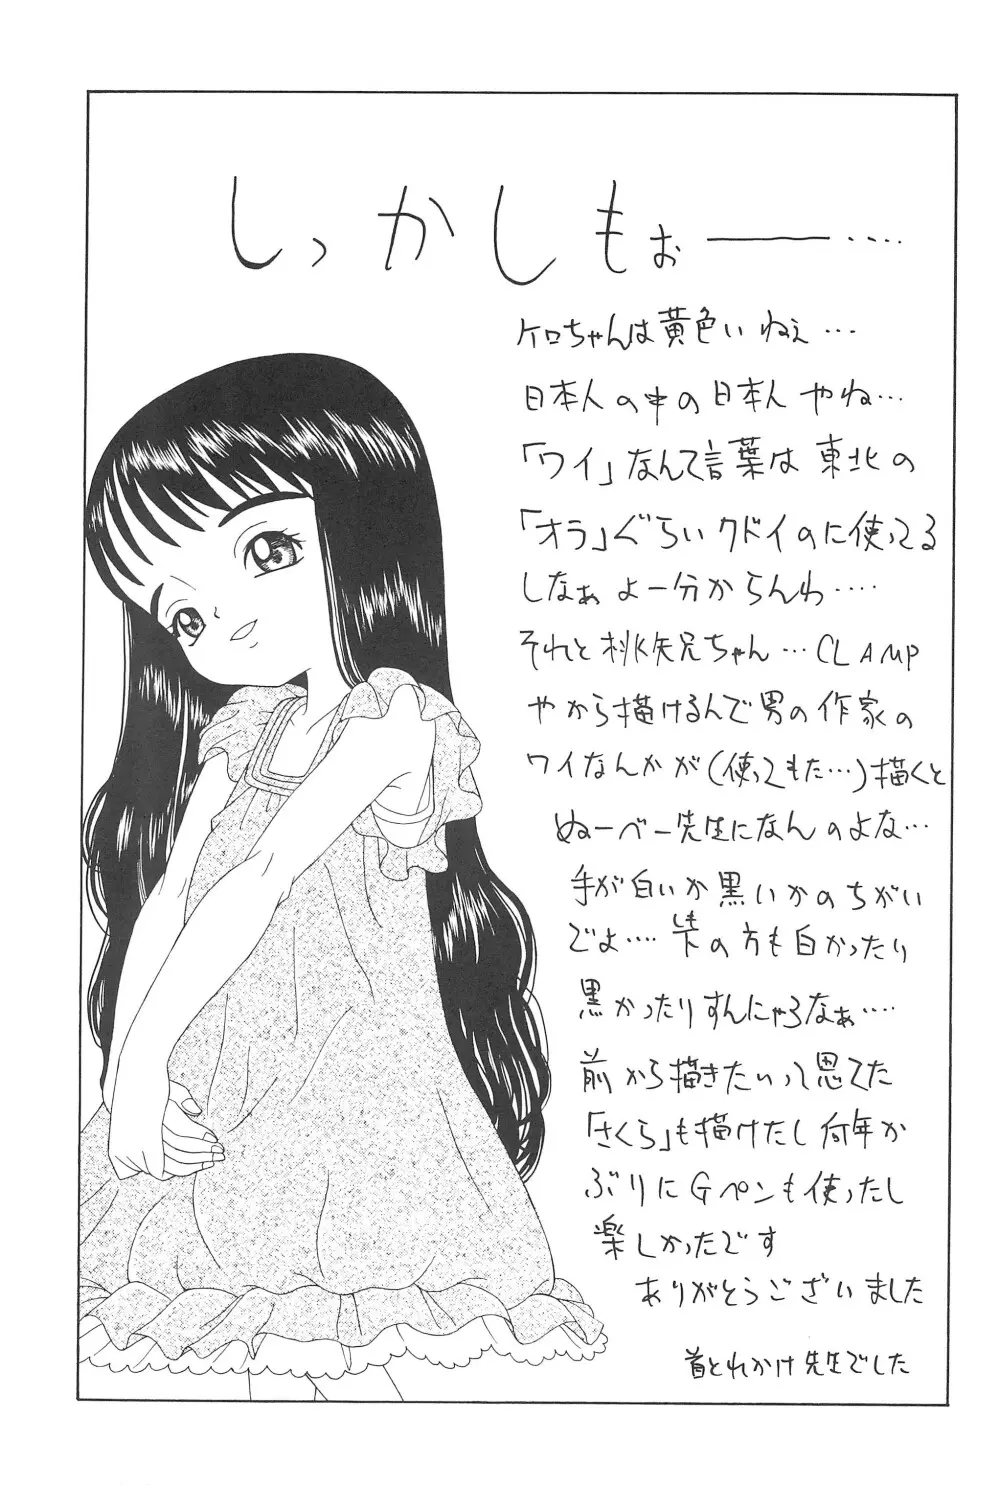 しっかしもぉ――…‥
ケロちゃんは黄色いねぇ…
日本人の中の日本人やね…
「ワイ」なんて言葉は東北の
「オラ」ぐらいクドイのに使ってる
しなぁよー分からんわ‥‥
それと桃矢兄ちゃん…CLAMP
やから描けるんで男の作家の
ワイなんかが(使ってもた…)描くと
ぬーべー先生になんのよな…
手が白いか黒いかのちがい
でよ‥‥下の方も白かったり
しも
黒かったりすんにゃろなぁ‥‥
前から描きたいって思てた
「さくら」も描けたし何年か
ぶりにGペンも使ったし
楽しかったです
ありがとうございました
首とれかけ先生でした